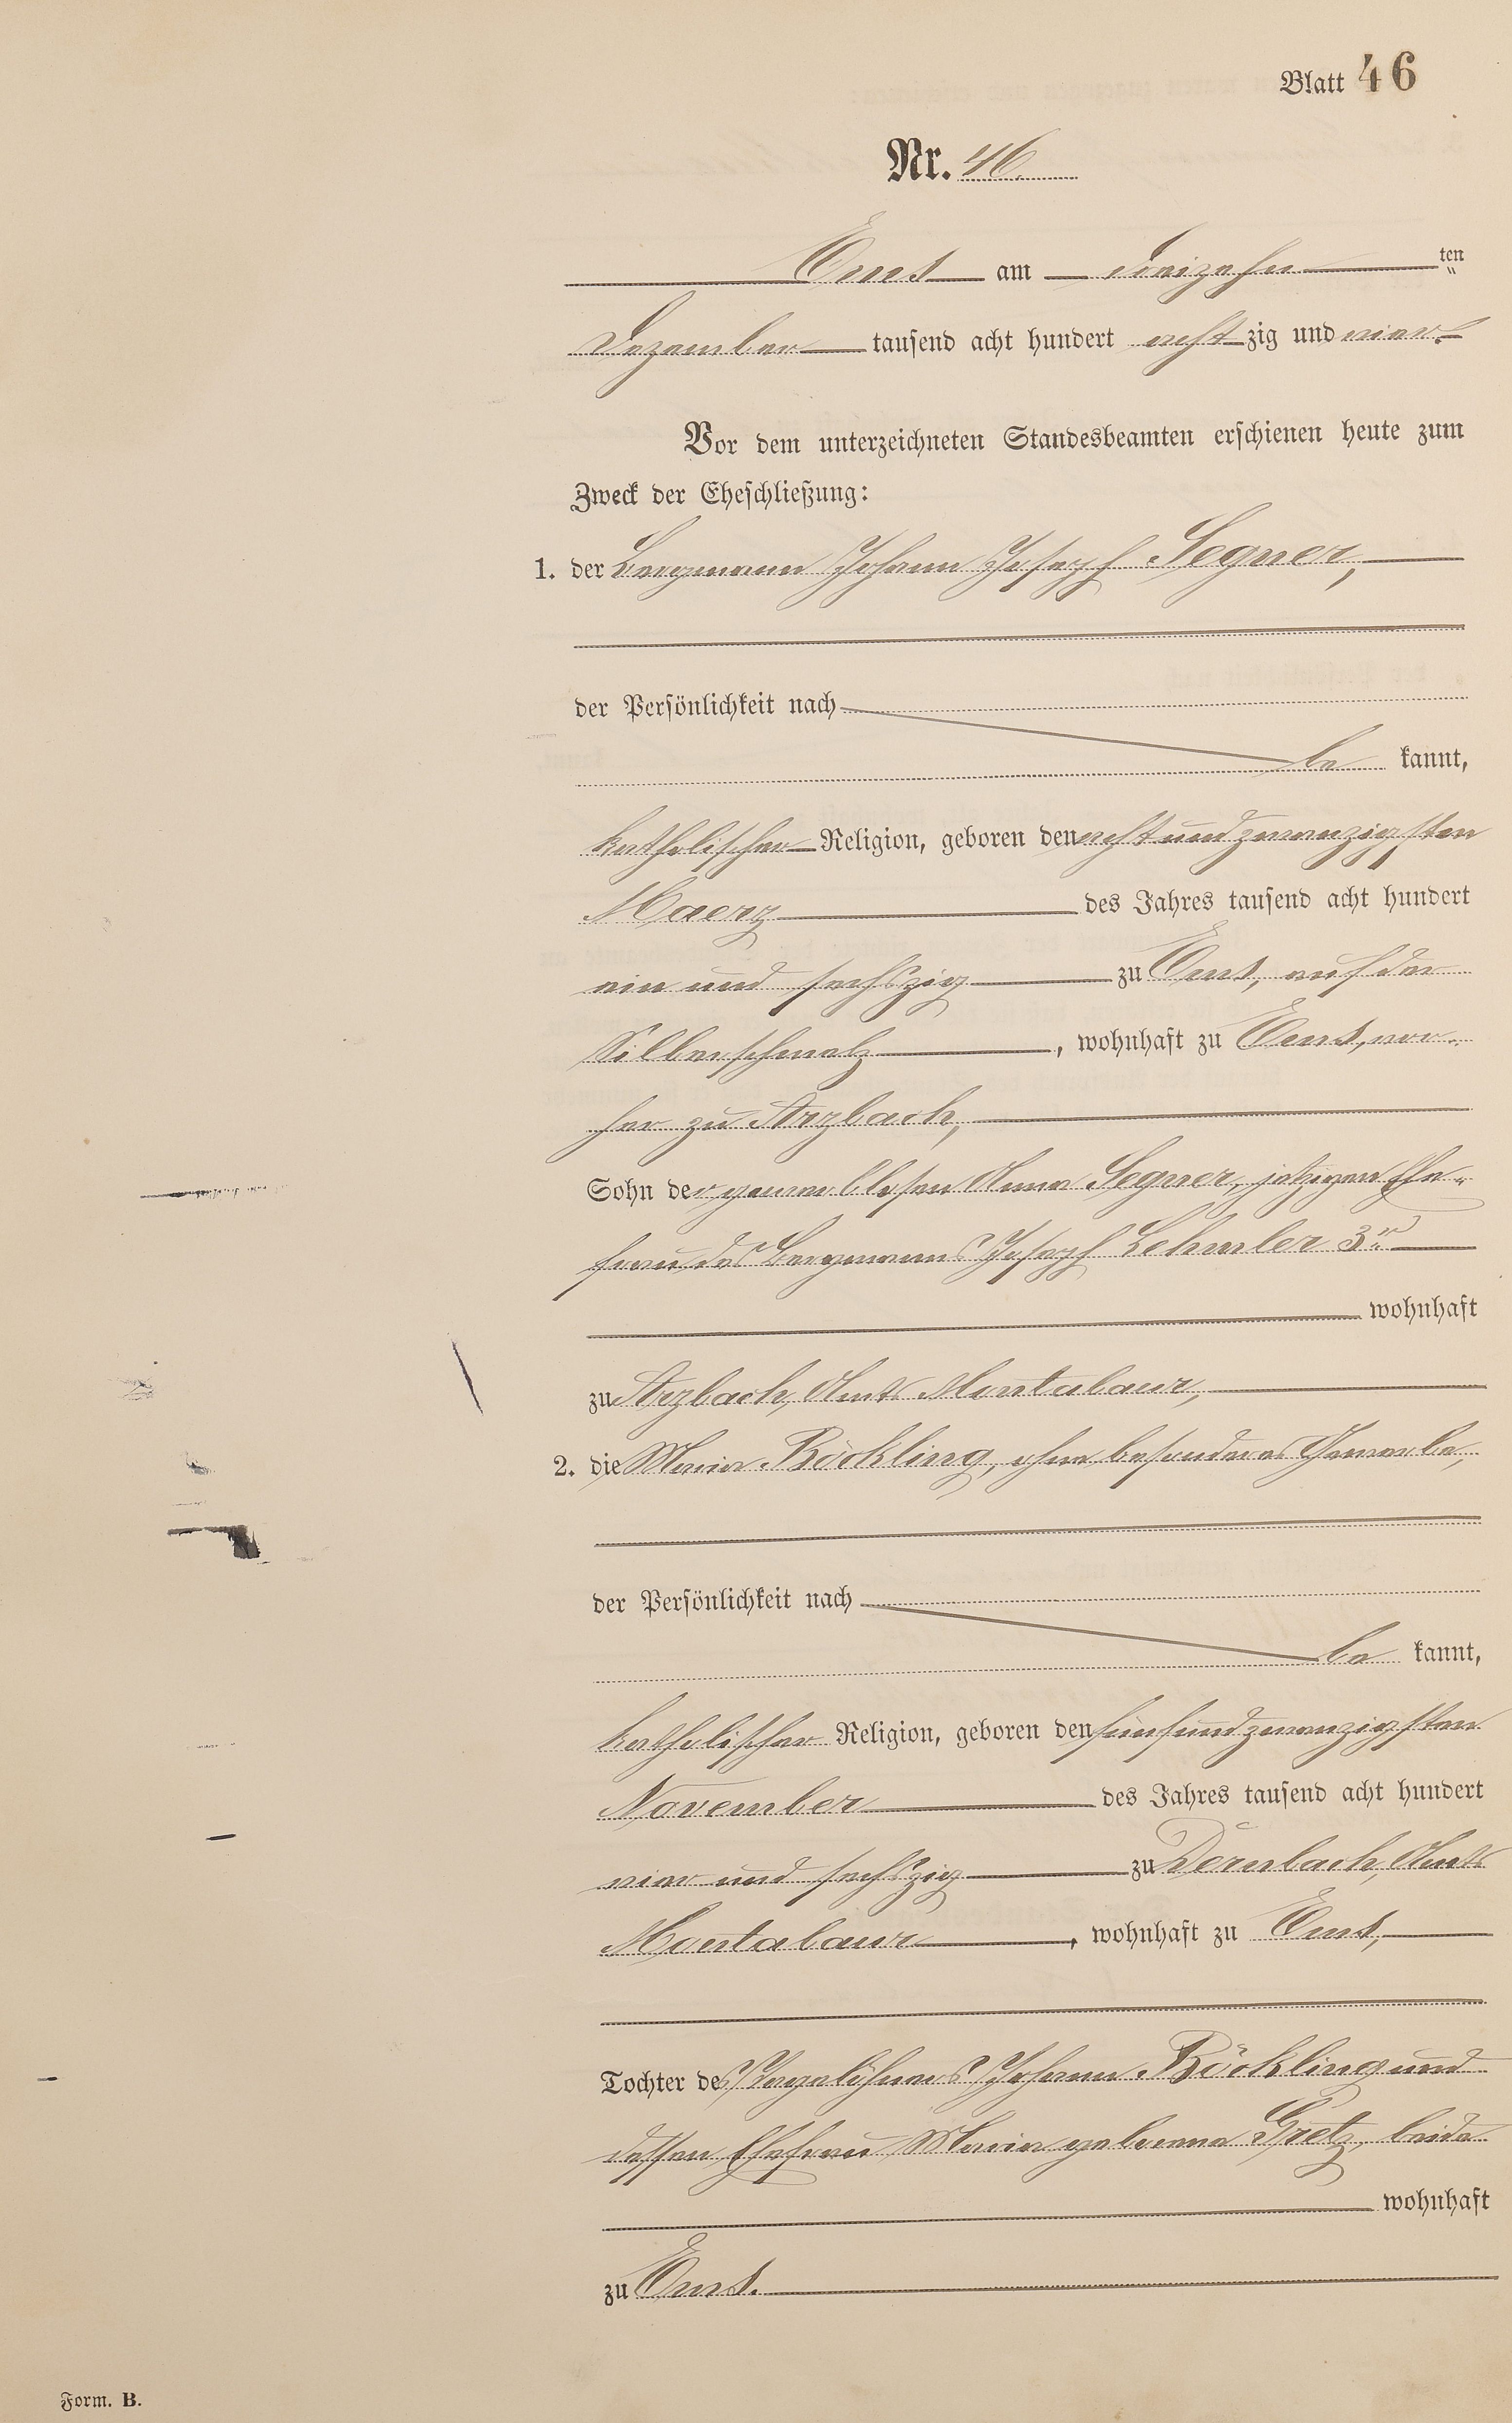 Blatt 46
Nr. 46.
Ems am dreizehn ten
Dezember tausend acht hundert acht zig und vier.
Vor dem unterzeichneten Standesbeamten erschienen heute zum
Zweck der Eheschließung:
1. der Bergmann Johann Joseph Segner,
der Persönlichkeit nach
be kannt,
katholischer Religion, geboren den acht und zwanzigsten
Maerz des Jahres tausend acht hundert
ein und sechszig zu Ems, auf der
Silberschmelz, wohnhaft zu Ems, vor-
her zu Arzbach,
Sohn der gewerblosen Anna Segner, jetzigen Ehe-
frau des Bergmanns Joseph Lehmler 3r
wohnhaft
zu Arzbach, Amts Montabaur,
2. die Maria Böckling, ohne besonderes Gewerbe,
der Persönlichkeit nach
be kannt,
katholischer Religion, geboren den fünf und zwanzigsten
November des Jahres tausend acht hundert
vier und sechszig zu Dernbach, Amts
Montabaur, wohnhaft zu Ems,
Tochter des Tagelöhners Johann Böckling und
dessen Ehefrau Maria geborene Gietz, beide
wohnhaft
zu Ems.
Form. B.